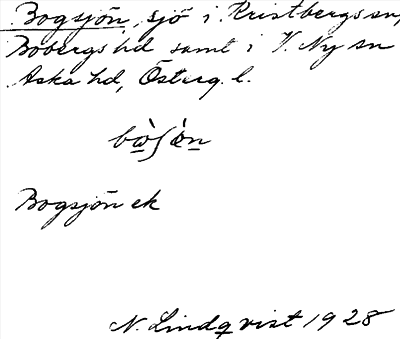 Bogsjön, sjö i Kristbergs sn,
Bobergs hd samt i V. Ny sn
Aska hd, Österg. l.
bὼʃòn
Bogsjön ek
N. Lindqvist 1928